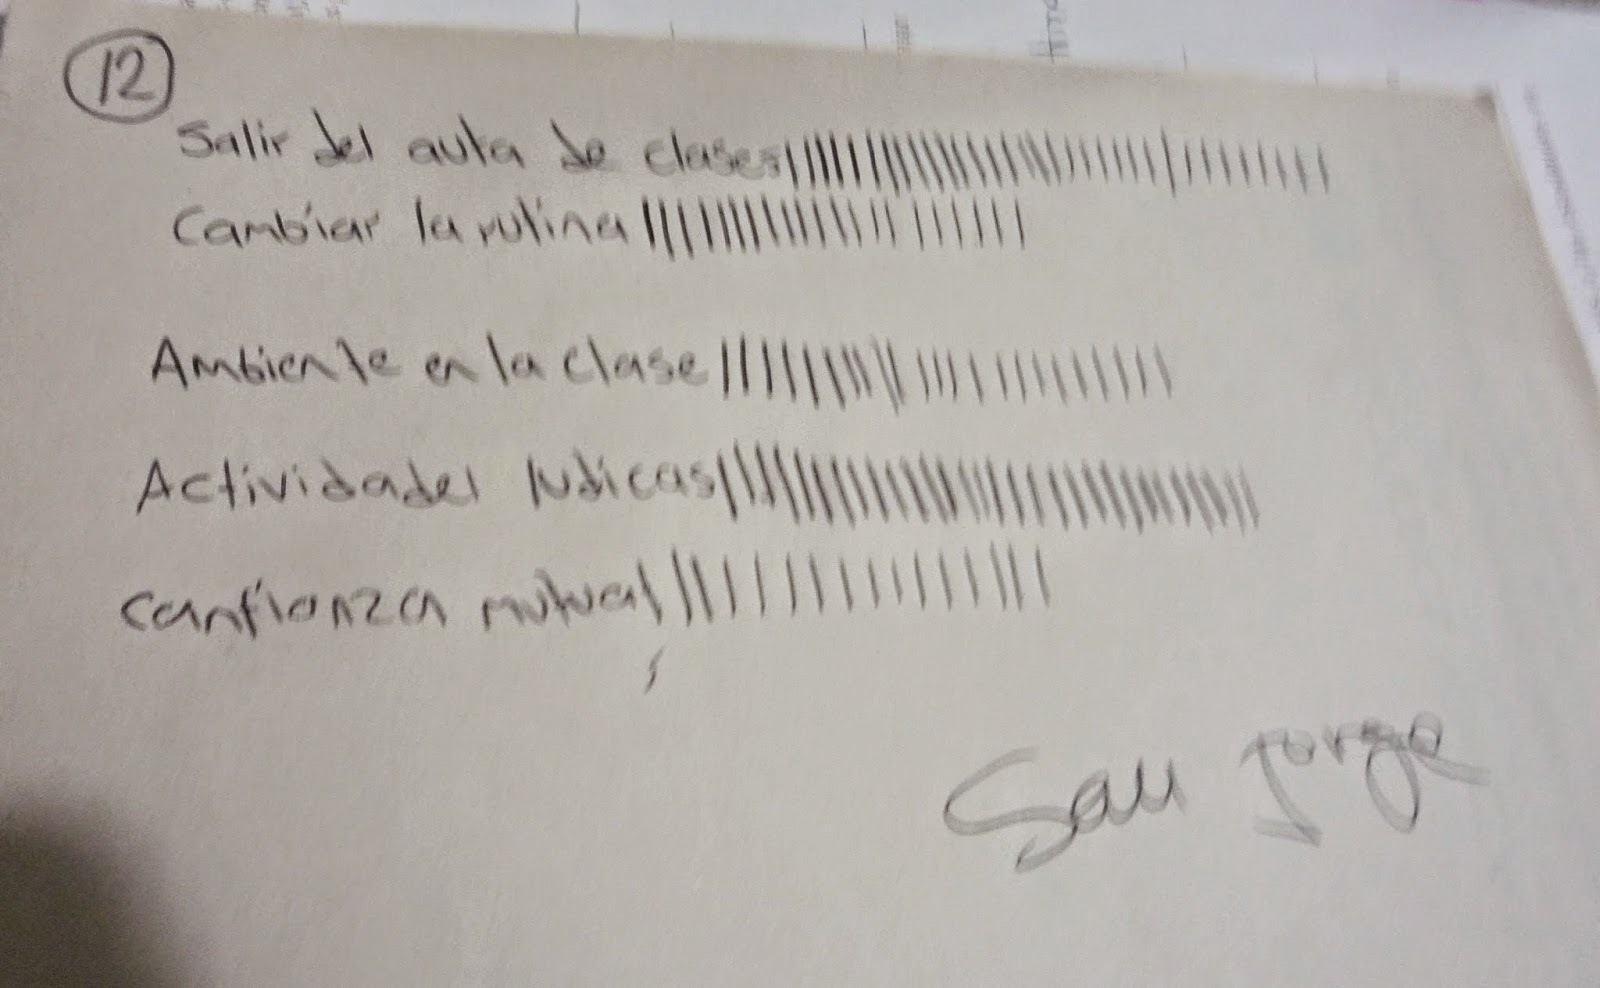 12
Salir del aula de clases
Cambiar la rutina
Ambiente en la clase
Actividades ludicas
Confianza mutua
San Jorge